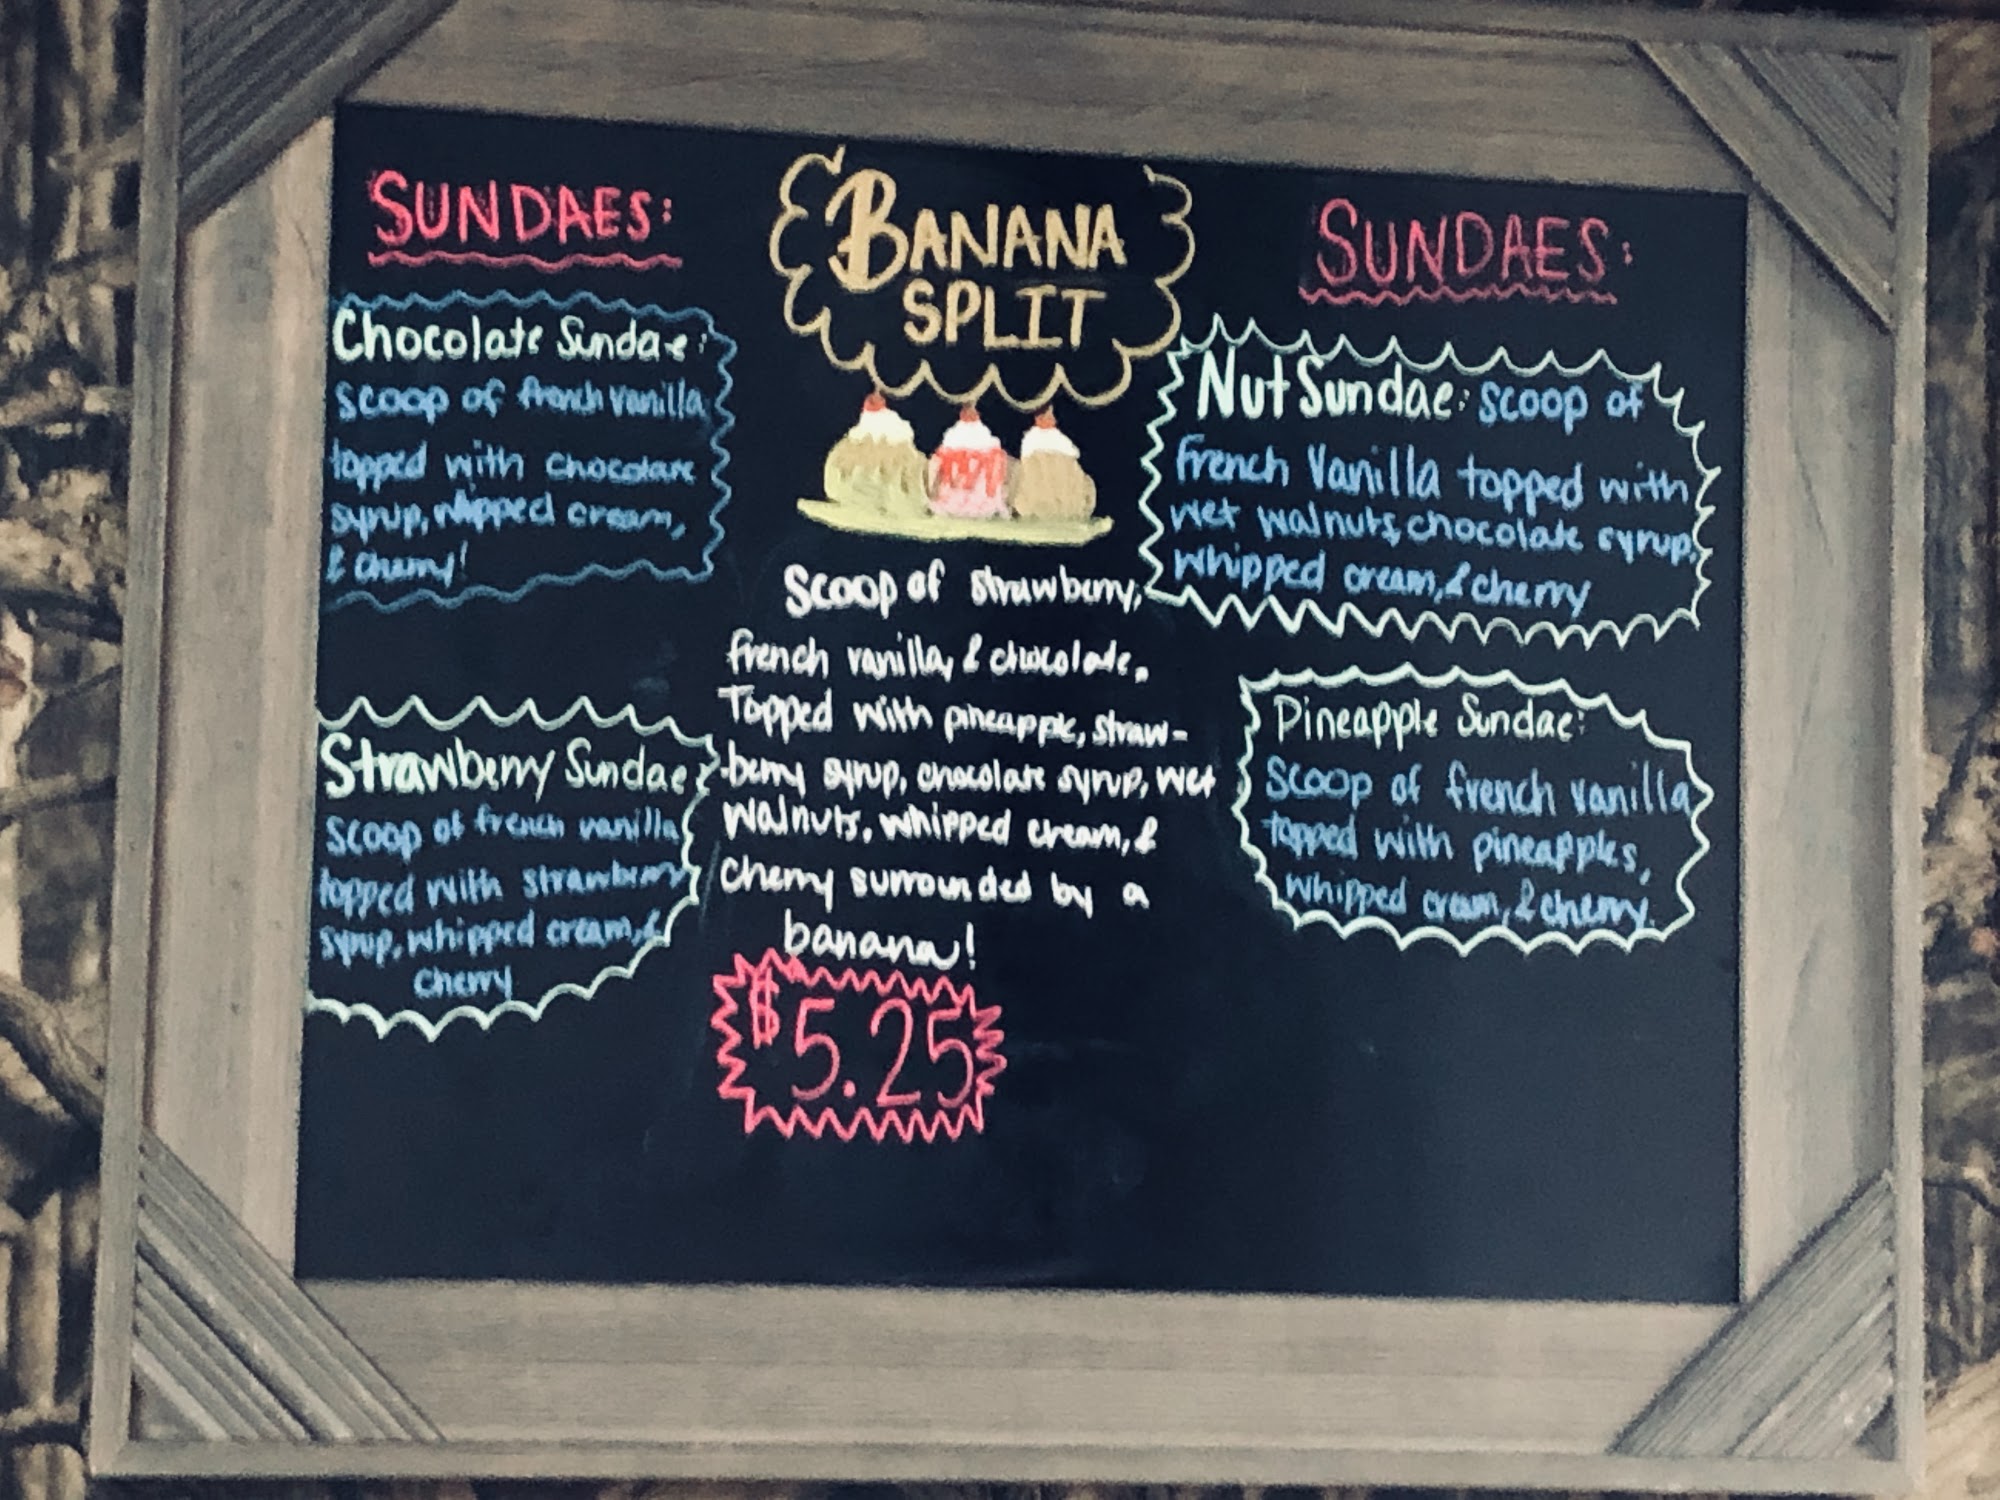 SUNDAES:
Chocolate Sundae:
scoop of french vanilla
topped with chocolate
syrup, whipped cream,
& cherry!
Strawberry Sundae:
scoop of french vanilla
topped with strawberry
syrup, whipped cream, &
cherry
BANANA
SPLIT
Scoop of strawberry,
french vanilla, & chocolate.
Topped with pineapple, straw-
-berry syrup, chocolate syrup, wet
walnuts, whipped cream, &
cherry surrounded by a
banana!
$5.25
SUNDAES:
Nut Sundae: scoop of
french vanilla topped with
wet walnuts, chocolate syrup,
whipped cream, & cherry
Pineapple Sundae:
Scoop of french vanilla
topped with pineapples,
whipped cream, & cherry.